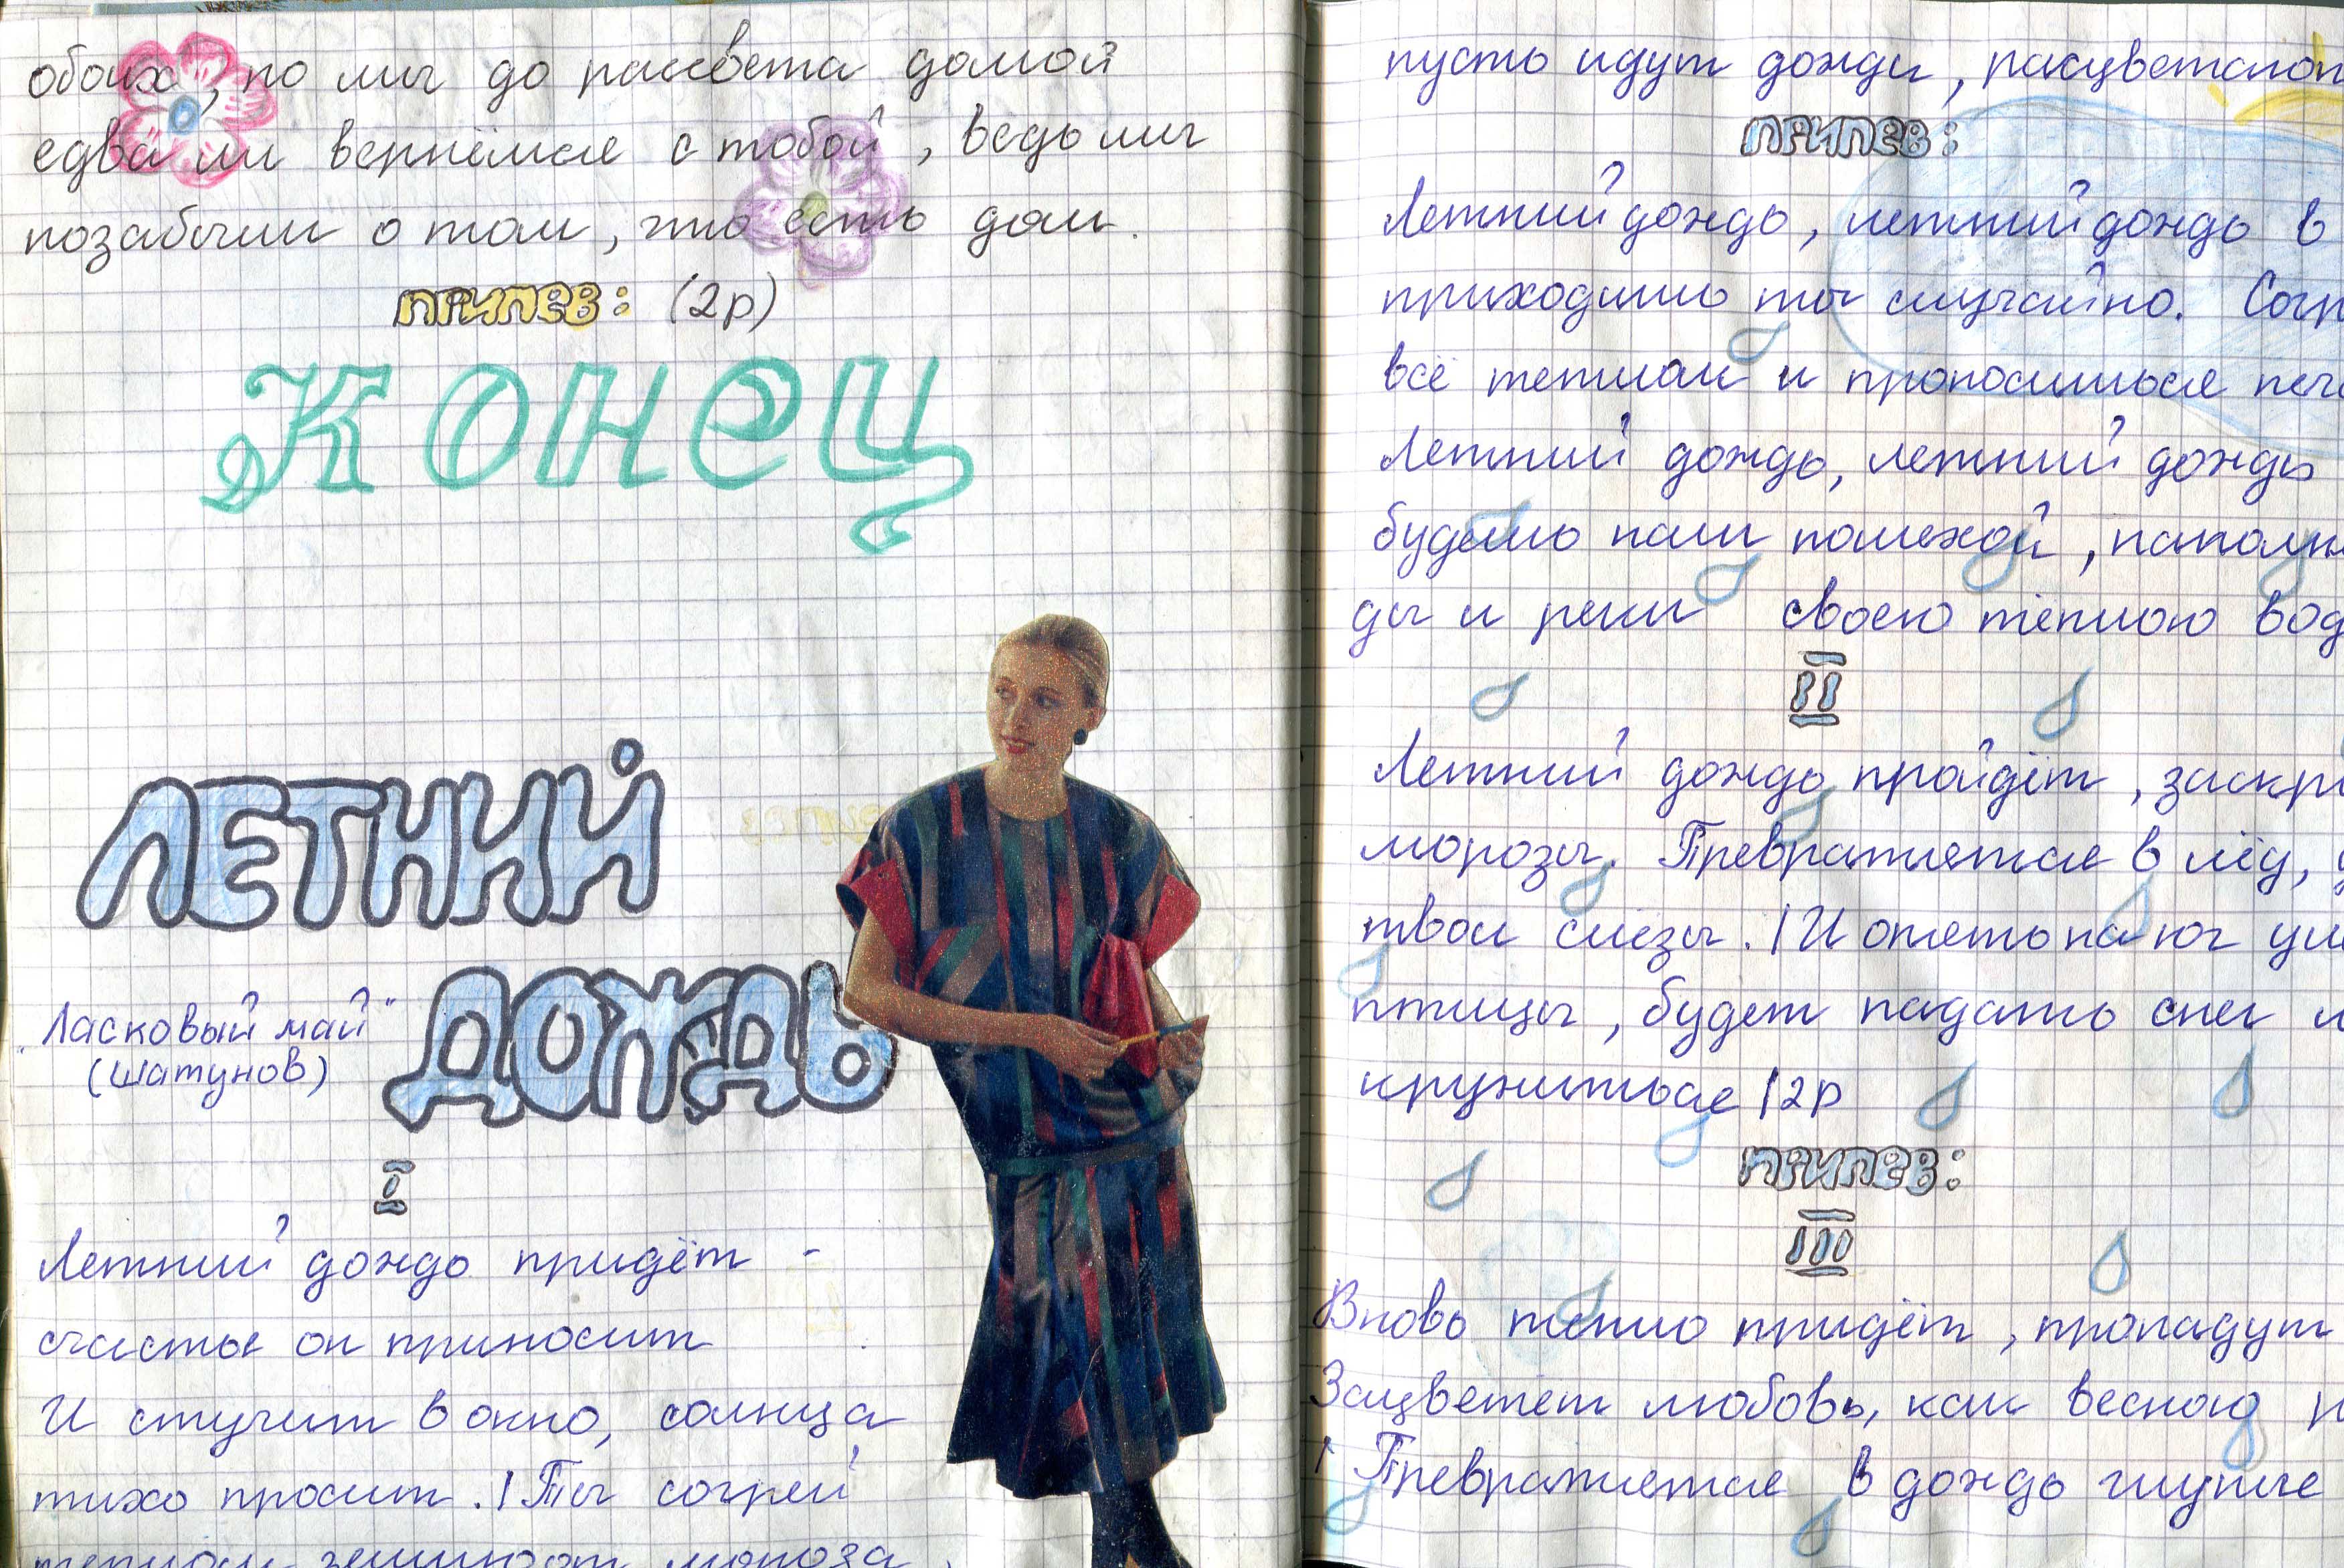 обоих, но мы до рассвета домой
едва ли вернёмся с тобой, ведь мы
позабыли о том, что есть дом.
ПРИПЕВ: (2р)
Конец
ЛЕТНИЙ
ДОЖДЬ
"Ласковый май"
(Шатунов)
I
Летний дождь придёт -
счастье он приносит
И стучит в окно, солнца
тихо просит. | Ты согрей
теплом
пусть идут дожди,
ПРИПЕВ:
Летний дождь, летний дождь в
приходишь ты случайно.
всё теплом и проносишься
Летний дождь, летний дождь
будешь нам помехой,
ды и реки своею тёплою
II
Летний дождь пройдёт,
морозы. Превратятся в лёд,
твои слёзы. | И опять на юг
птицы, будет падать снег и
кружиться | 2р
ПРИПЕВ:
III
Вновь тепло придёт, пропадут
Зацветёт любовь, как весною
| Превратятся в дождь